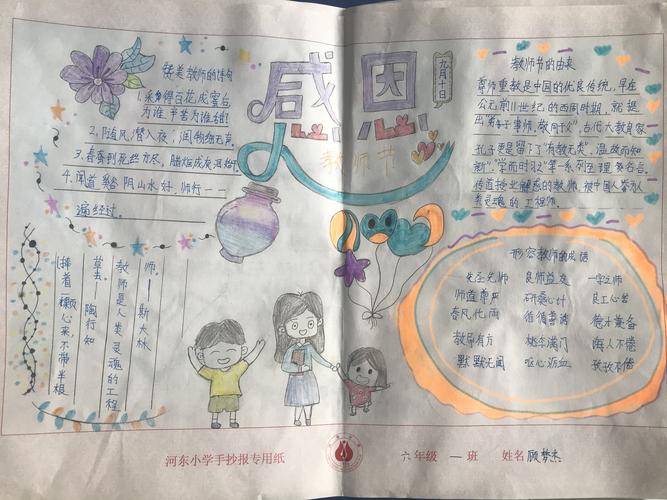 感恩
九月十日
教师节
赞美教师的诗句
1.采得百花成蜜后
为谁辛苦为谁甜!
2.随风潜入夜,润物细无声.
3.春蚕到死丝方尽,蜡炬成灰泪始干.
4.闻道 阴山水好,师行一一
遍经过.
师。——斯大林
教师是人类灵魂的工程
陶行知
草去。
捧着一颗心来,不带半根
教师节的由来
尊师重教是中国的优良传统,早在
公元前11世纪的西周时期,就提
出"弟子事师,敬同于父"古代大教育家
孔子更是留了"有教无类",温故而知
新","学而时习之"等一系列至理名言。
传道授业解惑的教师,被中国人誉为人
类灵魂的工程师。
形容教师的成语
先圣先师 良师益友 一字之师
师道尊严 研桑心计 良工心苦
春风化雨 循循善诱 德才兼备
教导有方 桃李满门 诲人不倦
默默无闻 呕心沥血 孜孜不倦
河东小学手抄报专用纸
六年级 一班 姓名顾梦杰